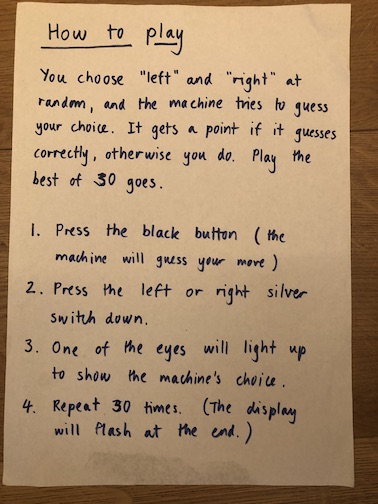 How to play
You choose "left" and "right" at
random, and the machine tries to guess
your choice. It gets a point if it guesses
correctly, otherwise you do. Play the
best of 30 goes.
1. Press the black button (the
machine will guess your move)
2. Press the left or right silver
switch down.
3. One of the eyes will light up
to show the machine's choice.
4. Repeat 30 times. (The display
will flash at the end.)